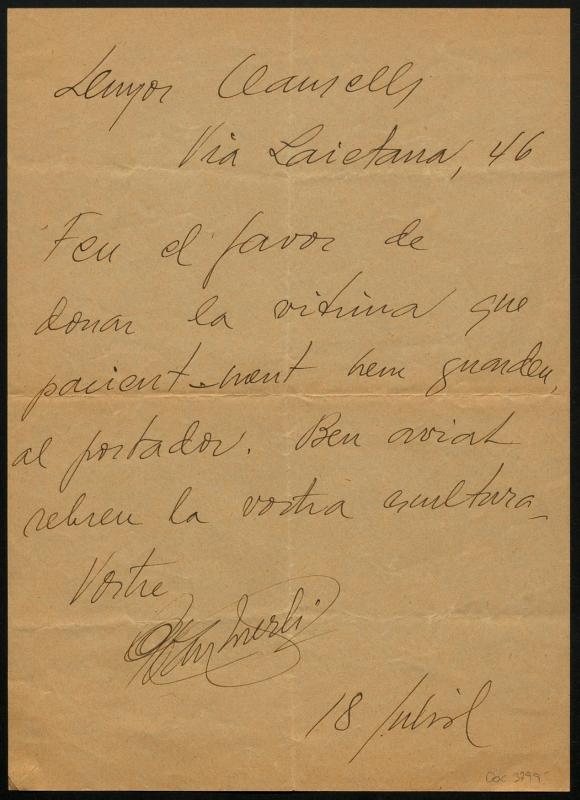 Senyor Clausells
Via Laietana, 46
Feu el favor de
donar la vitrina que
pacient-ment hem guarden,
al portador. Ben aviat
rebreu la vostra escultura_
Vostre
Joan Merli
18 Juliol